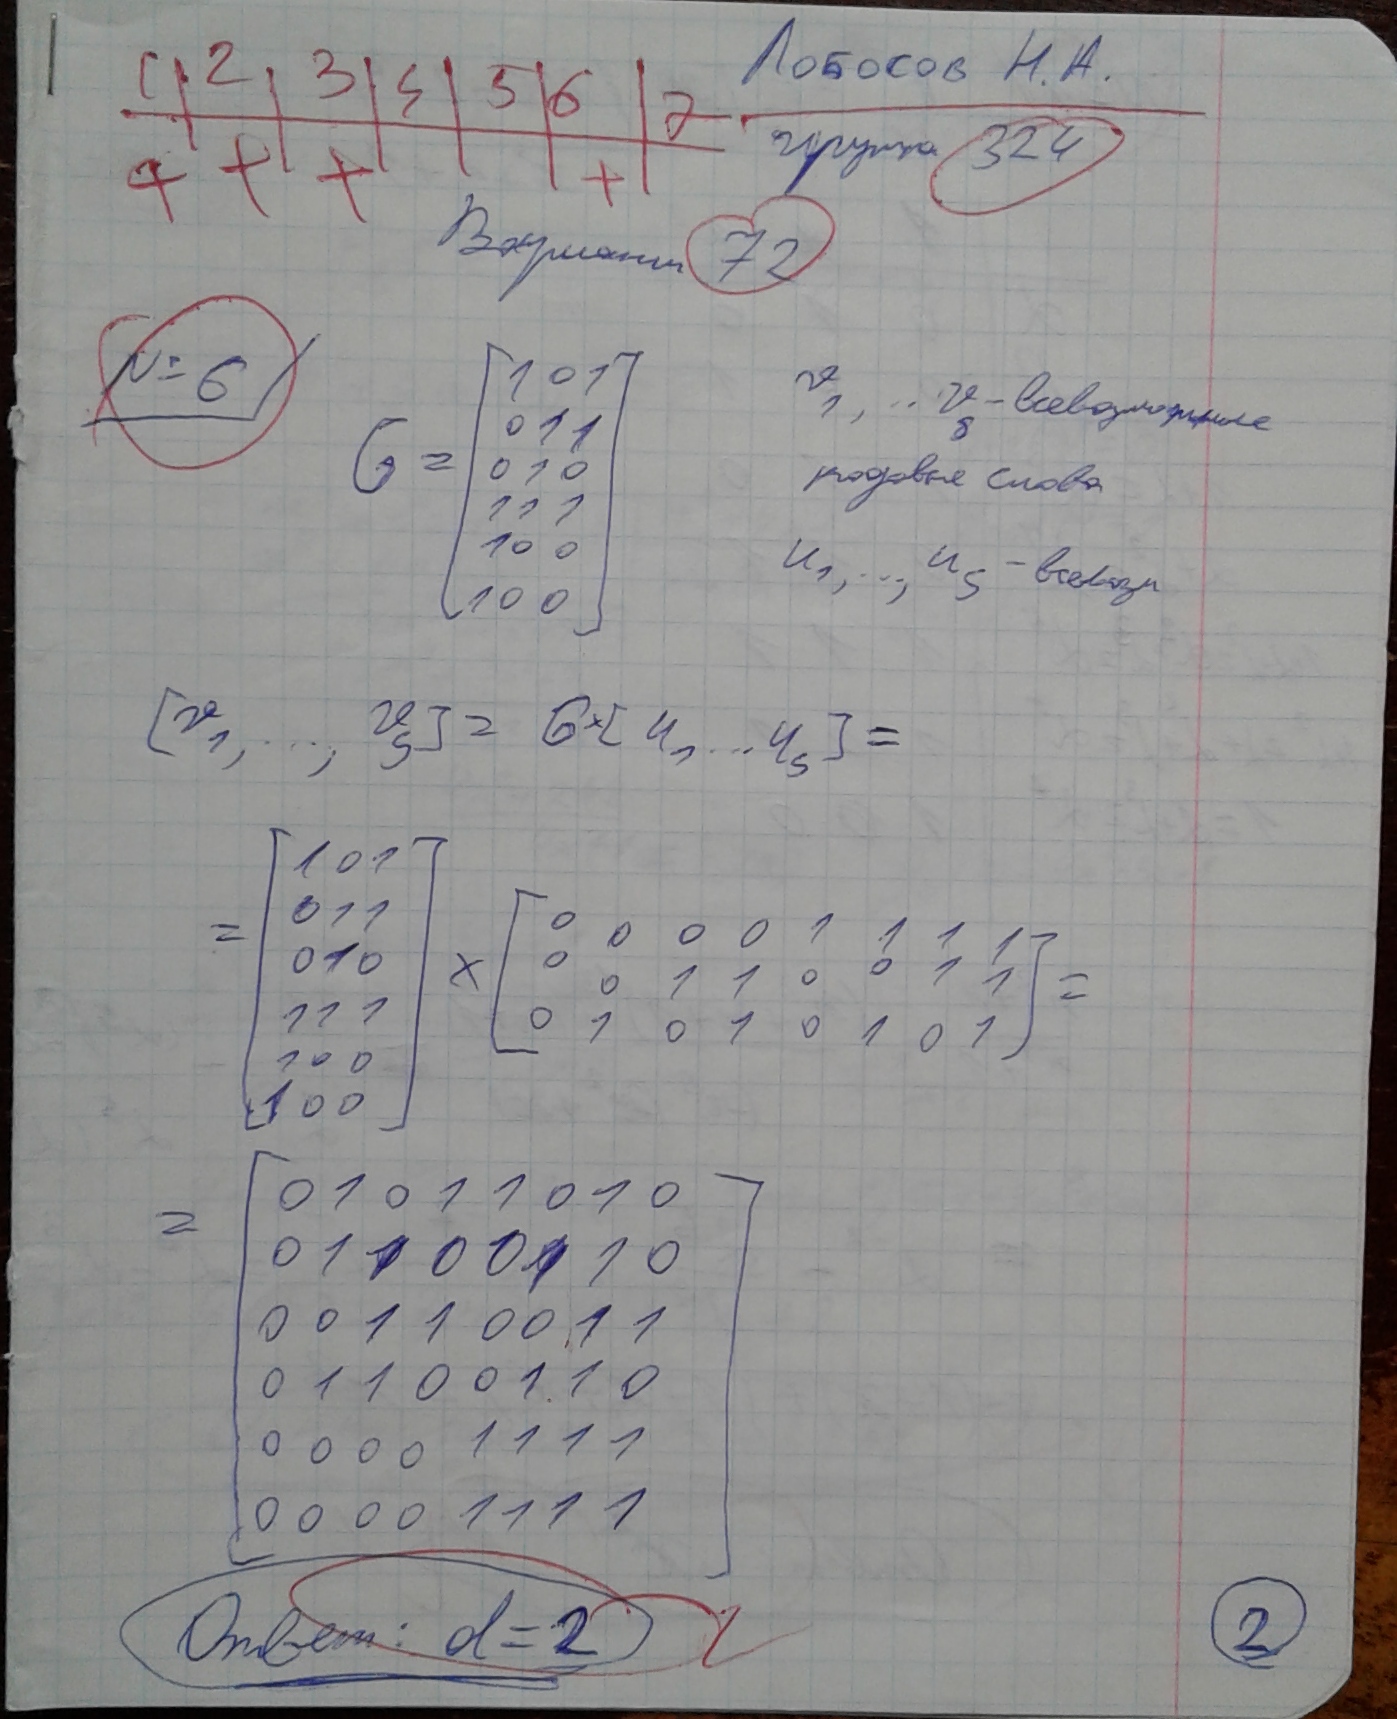 1 2 3 4 5 6 7
+ + + +
Лобосов Н.А.
группа 324
Вариант 72
№ 6
G = [1 0 1
0 1 1
0 1 0
1 1 1
1 0 0
1 0 0]
v1, ... v8 - всевозможные
кодовые слова
u1, ..., u5 - всевозм
[v1, ..., v5] = G×[u1 ... u5] =
= [1 0 1
0 1 1
0 1 0
1 1 1
1 0 0
1 0 0]
× [0 0 0 0 1 1 1 1
0 0 1 1 0 0 1 1
0 1 0 1 0 1 0 1] =
= [0 1 0 1 1 0 1 0
0 1 1 0 0 1 1 0
0 0 1 1 0 0 1 1
0 1 1 0 0 1 1 0
0 0 0 0 1 1 1 1
0 0 0 0 1 1 1 1]
Ответ: d=2
2